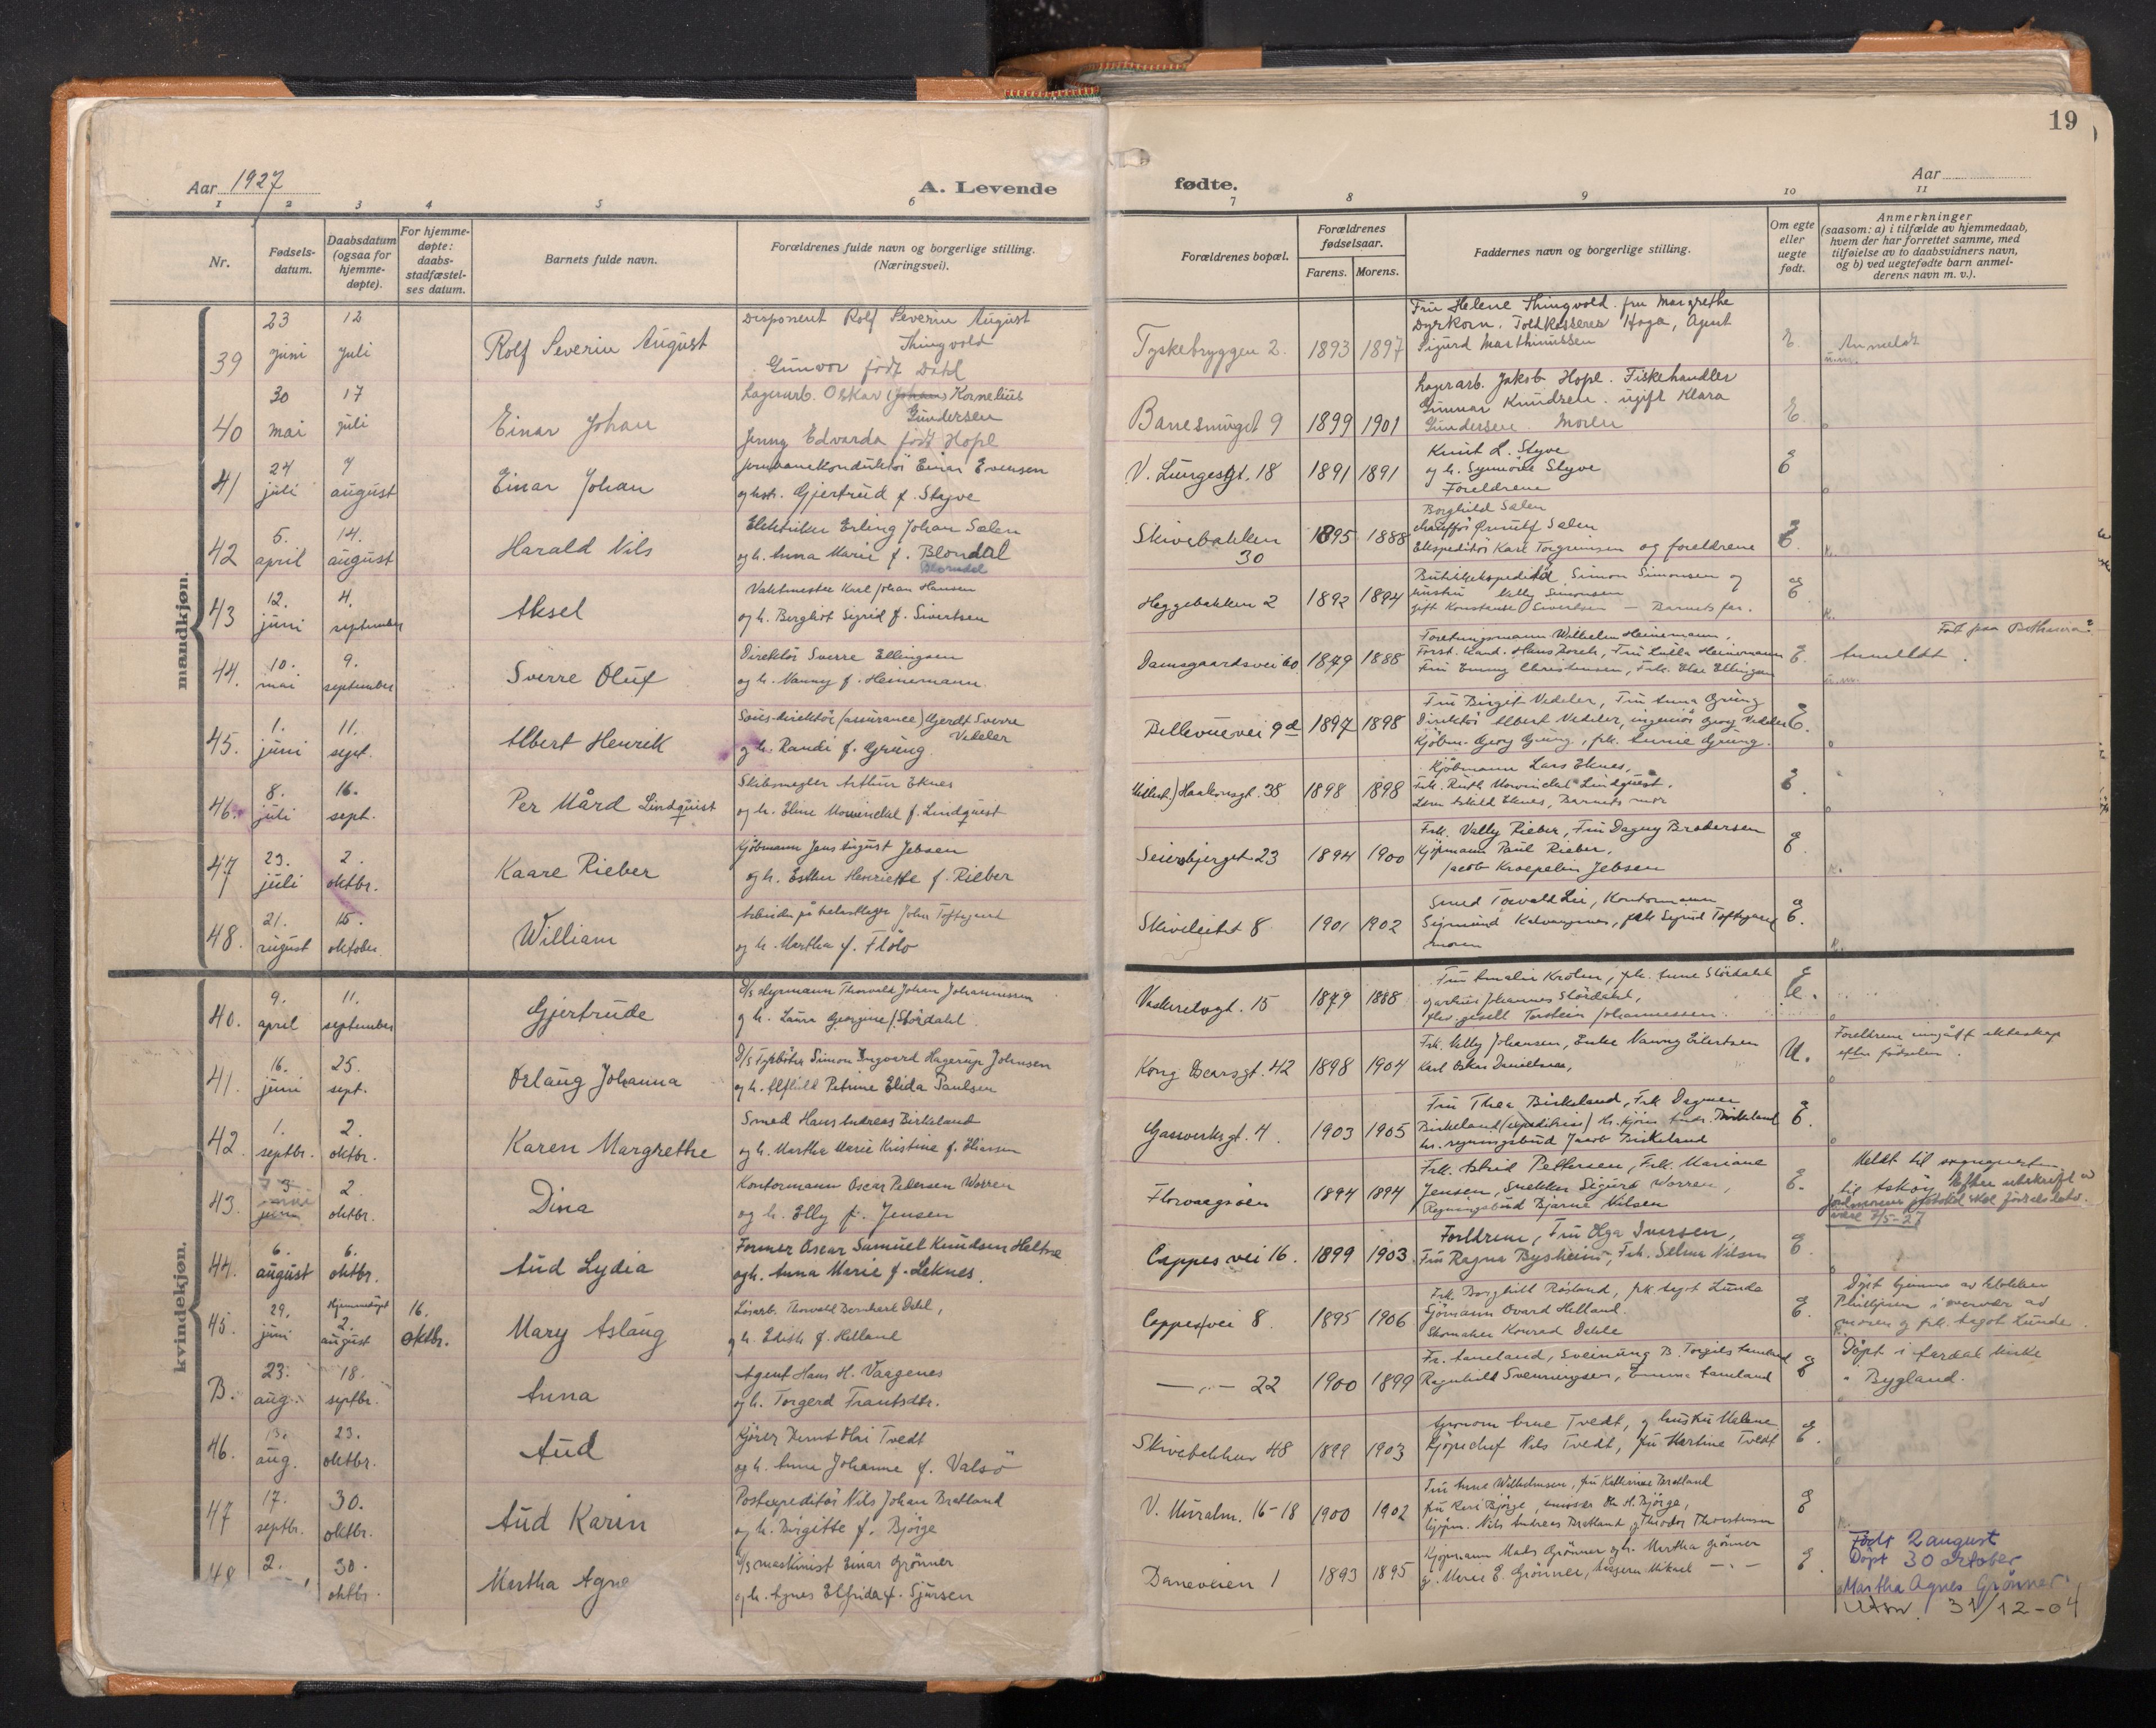 19
Aar 1927
A. Levende
fødte.
Aar
1 2 3 4 5 6 7 8 9 10 11
Nr.
Fødsels-
datum.
Daabsdatum
(ogsaa for
hjemme-
døpte).
For hjemme-
døpte:
daabs-
stadfæstel-
ses datum.
Barnets fulde navn.
Forældrenes fulde navn og borgerlige stilling.
(Næringsvei).
Forældrenes bopæl.
Forældrenes
fødselsaar.
Farens. Morens.
Faddernes navn og borgerlige stilling.
Om egte
eller
uegte
født.
Anmerkninger
(saasom: a) i tilfælde av hjemmedaab,
hvem der har forrettet samme, med
tilføielse av to daabsvidners navn,
og b) ved uegtefødte barn anmel-
derens navn m. v.).
mandkjøn.
39
23
juni
12
juli
Rolf Severin August
Disponent Rolf Severin August
Thingvold
Gunvor født Dahl
Tyskebryggen 2. 1893 1897
Fru Helene Thingvold. fru Margrethe
Dyrkorn. Toldkasserer Haga, Agent
Sigurd Marthinussen
E
Anmeldt
u.m.
40
30
mai
17
juli
Einar Johan
Lagerarb. Oskar (Johan) Kornelius
Gundersen
Jenny Edvarda født Hope
Banesmuget 9 1899 1901
Lagerarb. Jakob Hope. Fiskehandler
Gunnar Knudsen. ugift Klara
Gundersen. Moren
E
41
24
juli
7
august
Einar Johan
Jernbanekonduktør Einar Evensen
og hstr. Gjertrud f. Styve
V. Lungegt. 18 1891 1891
Knut L. Styve
og h. Synnöve Styve
Foreldrene
E
42
5.
april
14.
august
Harald Nils
Elektriker Erling Johan Salen
og h. Anna Marie f. Blondal
Blomdal
Skivebakken
30
1895 1888
Borghild Salen
chauffør Ørnulf Salen
Ekspeditör Karl Torgrimsen og foreldrene
E.
43
12.
juni
4.
september
Aksel
Vaktmester Karl Johan Hansen
og h. Bergliot Sigrid f. Sivertsen
Heggebakken 2 1892 1894
Butikkekspeditör Simon Simonsen og
hustru Valty Simonsen
gift Konstanse Sivertsen — Barnets far.
E.
44.
10.
mai
9.
september
Sverre Oluf
Direktör Sverre Ellingsen
og h. Nanny f. Heinemann.
Damsgaardsvei 60 1879 1888
Forretningsmann Wilhelm Heinemann,
Forst. kand. Hans Dorch, Fru Lulla Heinemann
Fru Emmy Christensen, Frk. Else Ellingsen
E.
Født paa Bethania?
Anmeldt.
u.m.
45.
1.
juni
11.
sept.
Albert Henrik
Sous-direktör (assurance) Gerdt Sverre
Vedeler
og h. Randi f. Grung.
Bellevuevei 9d 1897 1898
Fru Birgit Vedeler, Fru Anna Grung
Direktör Albert Vedeler, ingeniör Georg Vedeler
Kjöbm. Georg Grung, frk. Annie Grung.
E.
46.
8.
juli
16.
sept.
Per Mård Lindquist
Skibsmegler Arthur Eknes
og h. Eline Mowinckel f. Lindquist
Haakonsgt. 38 1898 1898
Kjöbmann Lars Eknes,
Frk. Ruth Mowinckel Lindquist.
Eknes, Barnets mor
E.
47
23.
juli
2.
oktbr.
Kaare Rieber
Kjöbmann Jens August Jebsen
og h. Esther Henriette f. Rieber
Seiersbjerget 23 1894 1900
Frk. Vally Rieber, Fru Dagny Brodersen
Kjöpmann Paul Rieber,
Jacob Kroepelin Jebsen
E.
48.
21.
august
15.
oktober
William
Arbeider på John Toftegaard
og h. Martha f. Flölo
Skiveleitet 8 1901 1902
Smed Torvald Lie, Kontormann
Sigmund Kalvaagnes, frk Sigrid Toftegaard
moren
E.
kvindekjøn.
40.
9.
april
11.
september
Gjertrude
D/s styrmann Thorvald Johan Johannessen
og h. Laura Georgine f. Stördahl.
Vaskerelvgt. 15 1879 1888
Fru Amalie Krohn, frk. Anne Stördahl
gartner Johannes Stördahl,
Torstein Johannessen.
E.
41.
16.
juni
25.
sept.
Orlaug Johanna
D/s Fyrböter Simon Ingvard Hagerup Johnsen
og h. Alfhild Petrine Elida Paulsen
Kong Oscarsgt. 42 1898 1904
Frk. Velly Johansen, Enke Nanny Eilertsen
Karl Oskar Danielsen,
U.
Foreldrene inngått ekteskap
efter födselen.
42.
1.
septbr.
2.
oktbr.
Karen Margrethe
Smed Hans Andreas Birkeland
og h. Martha Marie Kristine f. Hansen
Gassverksgt. 4. 1903 1905
Fru Thea Birkeland, Frk Dagmar
Birkeland (expeditrise) Birkeland
hr. regningsbud Jacob Birkeland
E.
43.
3
mai
juni
2.
oktbr.
Dina
Kontormann Oscar Pedersen Worren
og h. Elly f. Jensen
Florvaagsöen 1894 1894
Frk. Astrid Pettersen, Frk. Mariane
Jensen, Snekker Sigurd Worren,
Regningsbud Bjarne Nilsen
E.
Meldt til sogneprten
til Asköy. Efter utskrift av
jordmorens protokol skal födselsdato
være 3/5-27
44.
6.
august
6.
oktbr.
Aud Lydia
Former Oscar Samuel Knudsen Heltne
og h. Anna Marie f. Leknes.
Cappes vei 16. 1899 1903
Foreldrene, Fru Olga Iversen,
Fru Ragna Bysheim, Frk. Selma Nilsen
E.
45.
29.
juni
Hjemmedöpt
2.
august
16.
oktbr.
Mary Aslaug
Lösarb. Thorvald Bernhard Dahl,
og h. Edith f. Helland
Cappes vei 8. 1895 1906
Frk. Borghild Röiland, frk. Agot Lunde
Sjömann Ovard Helland.
Skomaker Konrad Dahle
E.
Döpt hjemme av klokker
Phillipsen i overvær av
moren og frk. Aagot Lunde.
B.
23.
aug.
18.
septbr.
Anna
Agent Hans H. Vaagenes
og h. Torgerd Frantsdtr.
—„— 22 1900 1899
Fr. Aaneland, Sveinung B. Torgils Aaneland
Ragnhild Svenningsen, Emma Aaneland
E
Döpt i Aardal kirke
i Bygland.
46.
13.
aug.
23.
oktbr.
Aud
Kjörer Bernt Olai Tvedt
og h. Anna Johanne f. Valsö
Skivebakken 48 1899 1903
Agronom Arne Tvedt, og hustru Malene
Kjöpm. Nils Tvedt, fru Martine Tvedt
E.
47
17.
septbr.
30.
oktbr.
Aud Karin
Postexpeditör Nils Johan Bratland
og h. Birgitte f. Bjørge
V. Muralm. 16-18 1900 1902
Fru Anna Wilhelmsen, fru Katharina Bratland
fru Kari Bjørge, Ole H. Bjørge,
kjöpm. Nils Andreas Bratland og Theodor Thorstensen
E
48
2.
30.
oktbr.
Martha Agne
D/s maskinist Einar Grönner
og h. Agnes Elfrida f. Sjursen
Baneveien 1 1893 1895
Kjöpmann Mads Grönner og h. Martha Grönner
gj. Marie E. Grönner, Mikael —„—
E.
Født 2 august
Döpt 30 oktober
Martha Agnes Grönner.
Utsn. 31/12-04